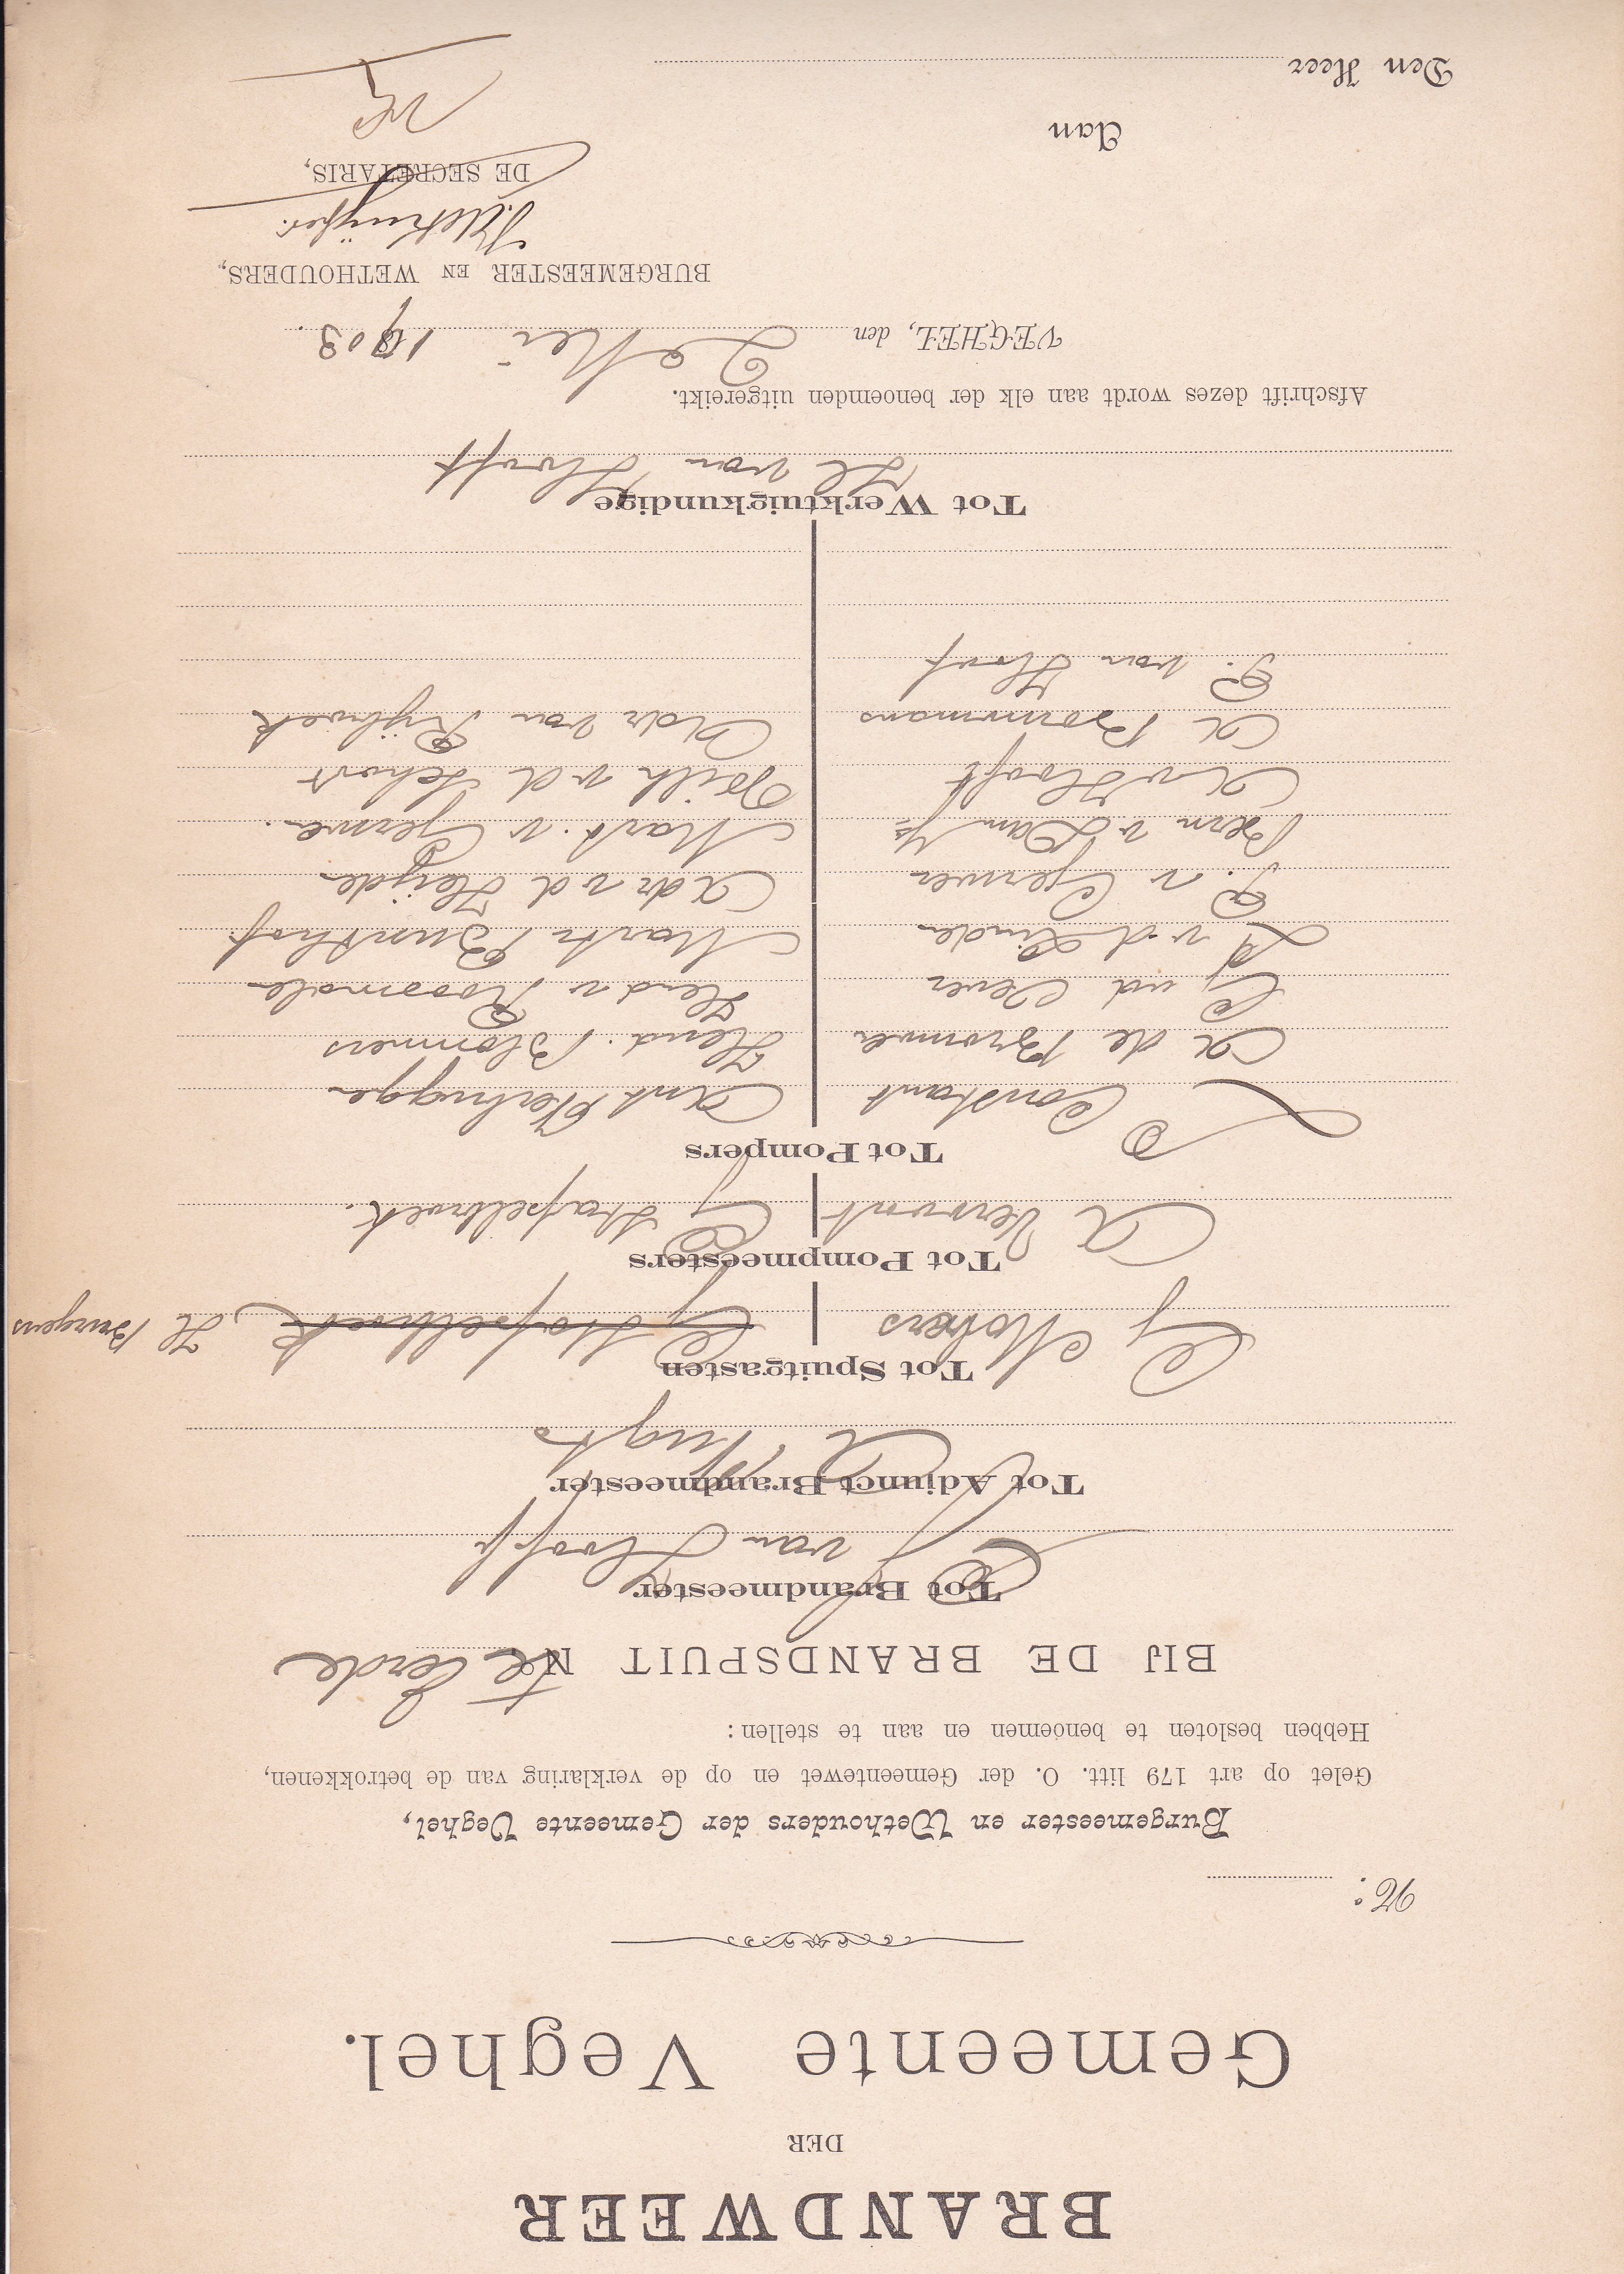 BRANDWEER
DER
Gemeente Veghel.
No:
Burgemeester en Wethouders der Gemeente Veghel,
Gelet op art 179 litt. O. der Gemeentewet en op de verklaring van de betrokkenen,
Hebben besloten te benoemen en aan te stellen:
BIJ DE BRANDSPUIT No te Eerde
Tot Brandmeester
G van Hooft
Tot Adjunct Brandmeester
A
Tot Spuitgasten
G H Burgers
Tot Pompmeesters
A Vervoort G
Tot Pompers
L Constant
A de Brouwer
G vd Oever
A v d Linden
P. v Gerwen
Bern v Dam
A v Hooft
A Bouwmans
P. van Hooft
Ant Verbugge
Hend. Blommers
Hend v Roosmalen
Mart Bunthof
Adr v d Heijden
Mart. v Gerwen.
Wilh v d Schoot
Adr van Rijbroek
Tot Werktuigkundige
H van Hooft
Afschrift dezes wordt aan elk der benoemden uitgereikt.
VEGHEL, den 2 Mei 1903.
BURGEMEESTER EN WETHOUDERS,
DE SECRETARIS,
Aan
Den Heer